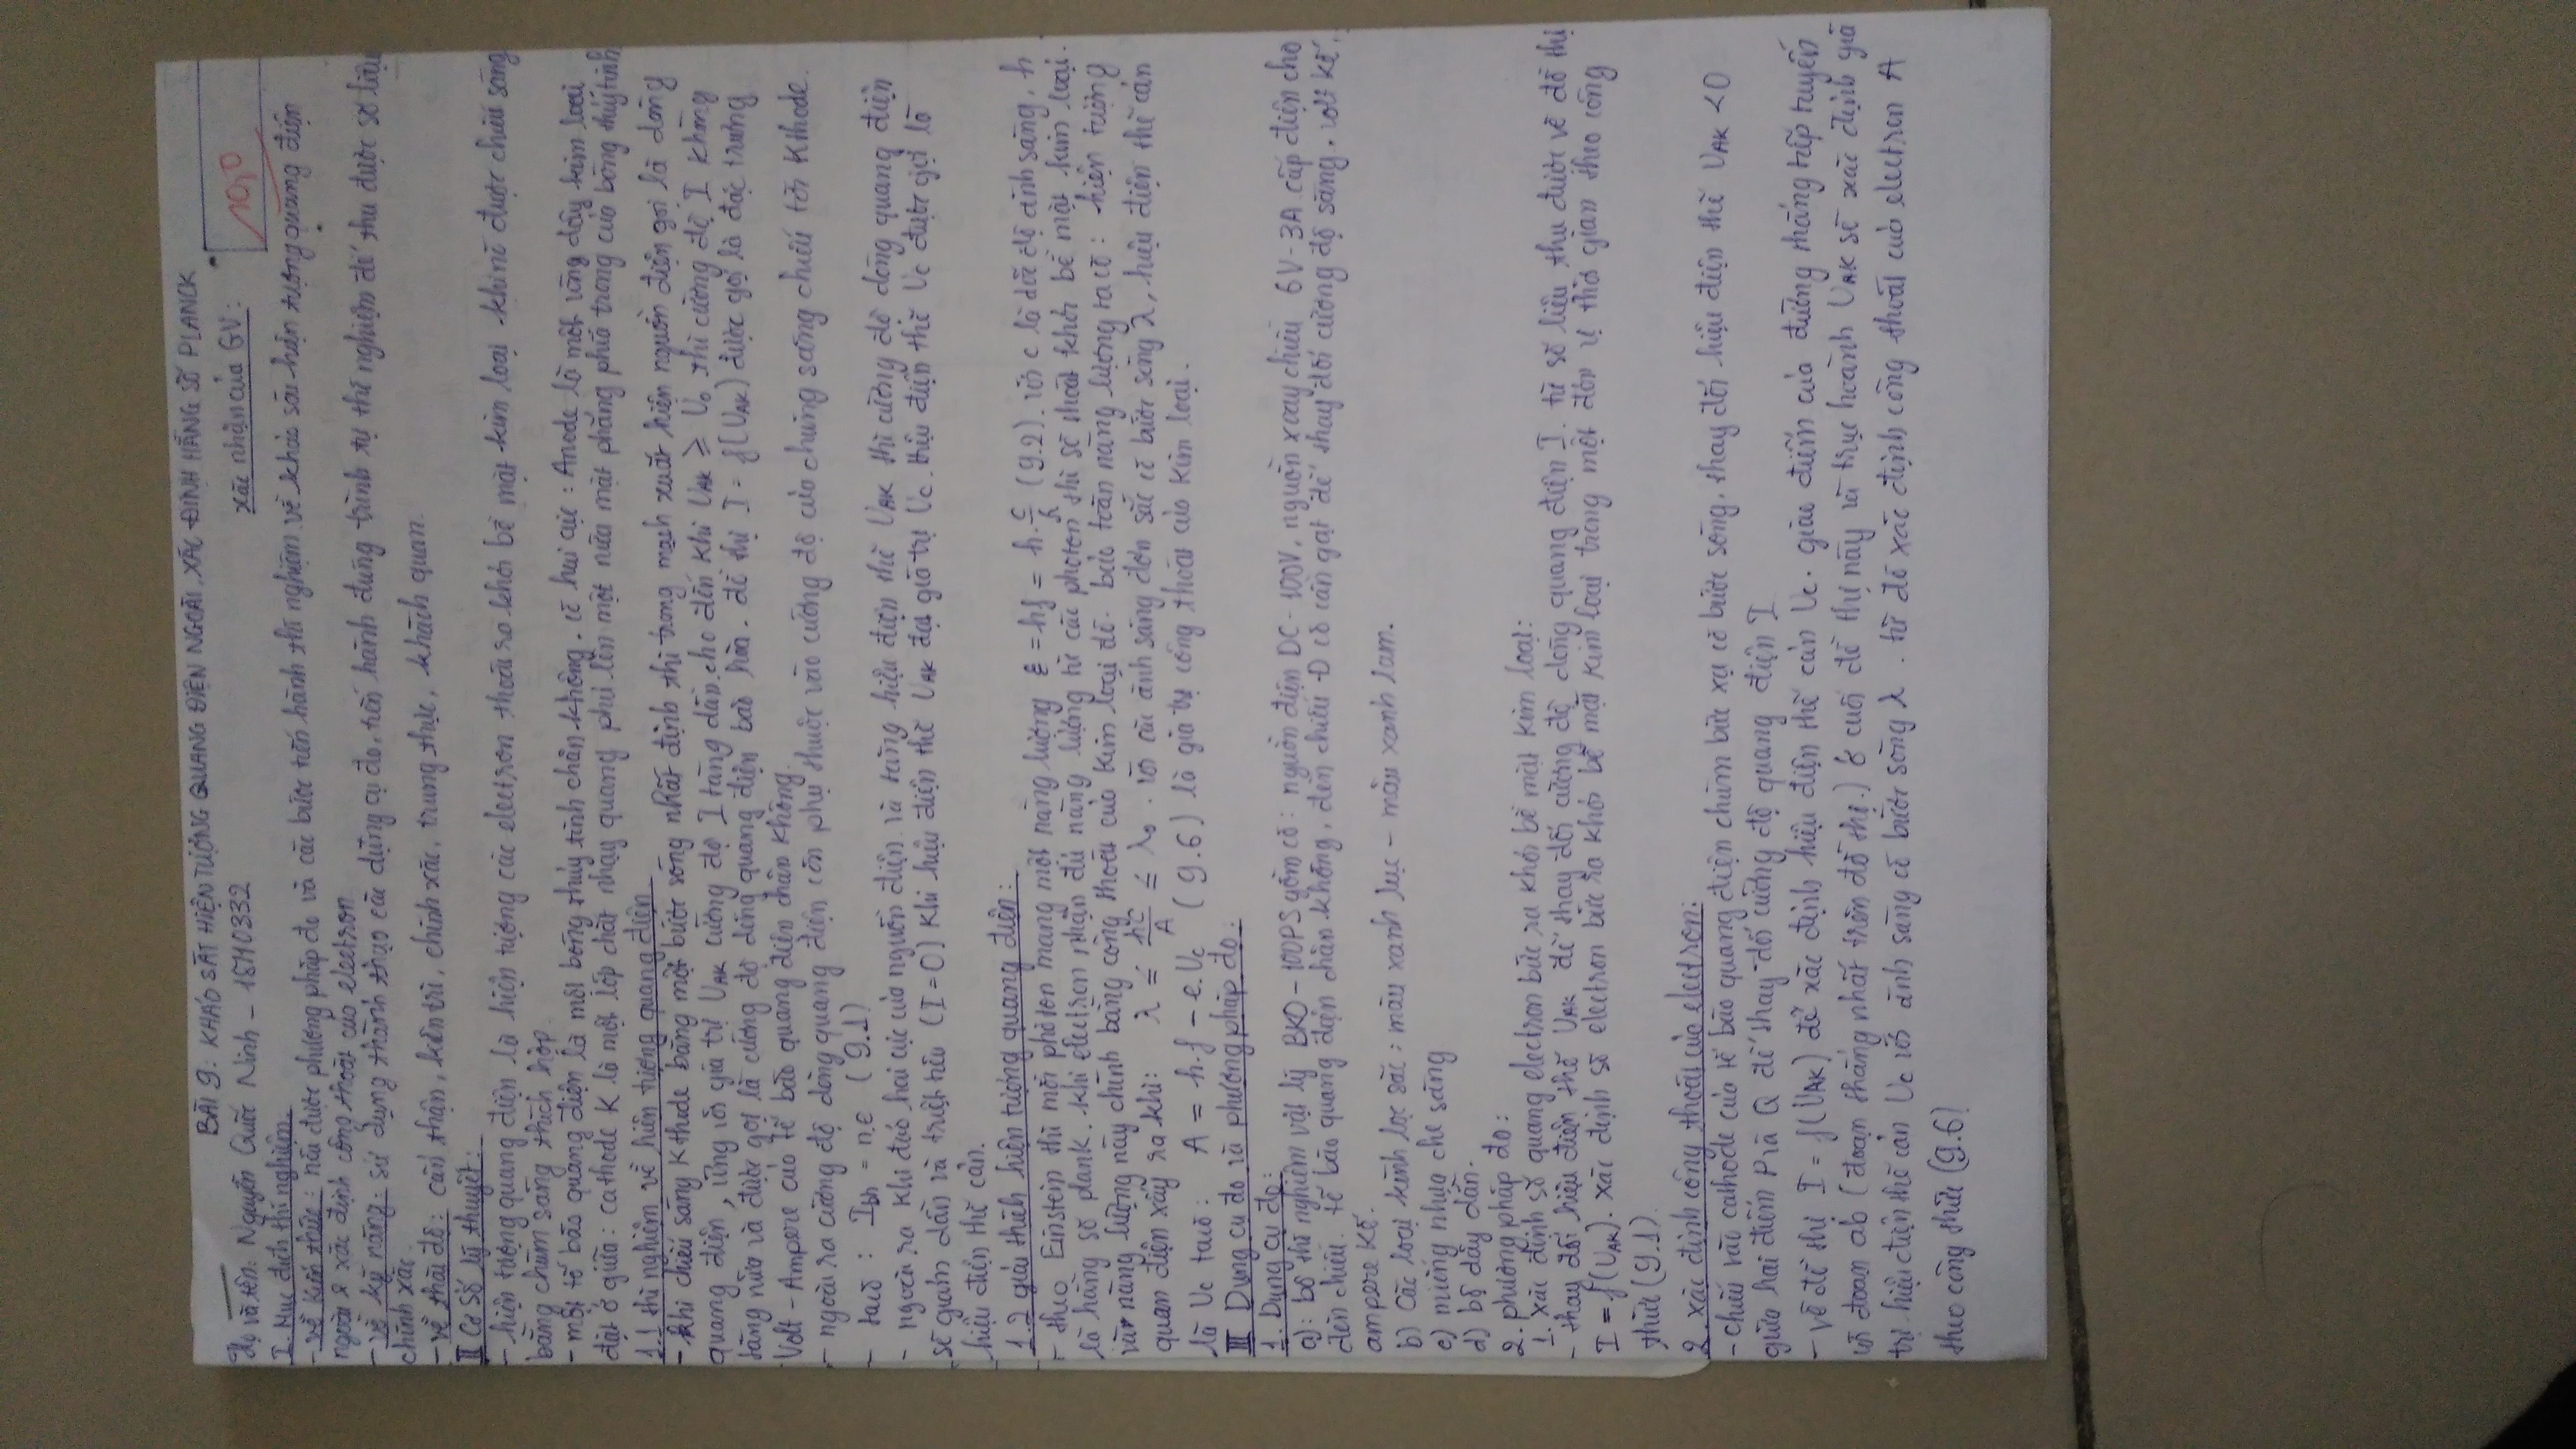 BÀI 9: KHẢO SÁT HIỆN TƯỢNG QUANG ĐIỆN NGOÀI, XÁC ĐỊNH HẰNG SỐ PLANCK
Họ và tên: Nguyễn Quốc Ninh - 18110332
xác nhận của GV:
10,0
I. Mục đích thí nghiệm.
- về kiến thức: nếu được phương pháp đo và các bước tiến hành thí nghiệm về khảo sát hiện tượng quang điện
ngoài & xác định công thoát của electron
- về kỹ năng: sử dụng thành thạo các dụng cụ đo, tiến hành đúng trình tự thí nghiệm để thu được số liệu
chính xác.
- về thái độ: cẩn thận, kiên trì, chính xác, trung thực, khách quan.
II Cơ Sở lý thuyết:
- hiện tượng quang điện là hiện tượng các electron thoát ra khỏi bề mặt kim loại khi nó được chiếu sáng
bằng chùm sáng thích hợp.
- một tế bào quang điện là một bóng thủy tinh chân không. có hai cực: Anode là một vòng dây kim loại
đặt ở giữa: cathode K là một lớp chất nhạy quang phủ lên một nửa mặt phẳng phía trong của bóng thủy tinh
1.1 thí nghiệm về hiện tượng quang điện
- Khi chiếu sáng Kthode bằng một bước sóng nhất định thì trong mạch xuất hiện nguồn điện gọi là dòng
quang điện, ứng với giá trị UAK cường độ I tăng dần. cho đến khi UAK ≥ U0 thì cường độ I không
tăng nữa và được gọi là cường độ dòng quang điện bão hòa. đồ thị I = f(UAK) được gọi là đặc trưng
Volt - Ampere của tế bào quang điện chân không.
- ngoài ra cường độ dòng quang điện còn phụ thuộc vào cường độ của chùng sáng chiếu tới Kthode.
- ta có: Ibh = n.e (9.1)
- ngoài ra khi đảo hai cực của nguồn điện và tăng hiệu điện thế UAK thì cường độ dòng quang điện
sẽ giảm dần và triệt tiêu (I=0) khi hiệu điện thế UAK đạt giá trị Uc. hiệu điện thế Uc được gọi là
hiệu điện thế cản.
1.2 giải thích hiện tượng quang điện:
- theo Einstein thì mỗi photon mang một năng lượng ε = hf = h.c/λ (9.2). với c là tốc độ ánh sáng, h
là hằng số plank. khi electron nhận đủ năng lượng từ các photon thì sẽ thoát khỏi bề mặt kim loại.
và năng lượng này chính bằng công thoát của kim loại đó. bảo toàn năng lượng ta có: hiện tượng
quan điện xảy ra khi: λ ≤ hc/A ≤ λ0. với các ánh sáng đơn sắc có bước sóng λ, hiệu điện thế cản
là Uc ta có: A = h.f - e.Uc (9.6) là giá trị công thoát của kim loại.
III Dụng cụ đo và phương pháp đo:
1. Dụng cụ đo:
a): bộ thí nghiệm vật lý BKO - 100PS gồm có: nguồn điện DC - 100V, nguồn xoay chiều 6V - 3A cấp điện cho
đèn chiếu. tế bào quang điện chân không, đèn chiếu Đ có cần gạt để thay đổi cường độ sáng. volt kế,
ampere kế.
b) Các loại kính lọc sắc: màu xanh lục - màu xanh lam.
c) miếng nhựa che sáng
d) bộ dây dẫn.
2. phương pháp đo:
1. xác định số quang electron bức ra khỏi bề mặt kim loại:
- thay đổi hiệu điện thế UAK để thay đổi cường độ dòng quang điện I. từ số liệu thu được vẽ đồ thị
I = f(UAK). xác định số electron bức ra khỏi bề mặt kim loại trong một đơn vị thời gian theo công
thức (9.1).
2. xác định công thoát của electron:
- chiếu vào cathode của tế bào quang điện chùm bức xạ có bước sóng. thay đổi hiệu điện thế UAK < 0
giữa hai điểm P và Q để thay đổi cường độ quang điện I
- vẽ đồ thị I = f(UAK) để xác định hiệu điện thế cản Uc. giao điểm của đường thẳng tiếp tuyến
với đoạn ab (đoạn thẳng nhất trên đồ thị.) ở cuối đồ thị này và trục hoành UAK sẽ xác định giá
trị hiệu điện thế cản Uc với ánh sáng có bước sóng λ. từ đó xác định công thoát của electron A
theo công thức (9.6)